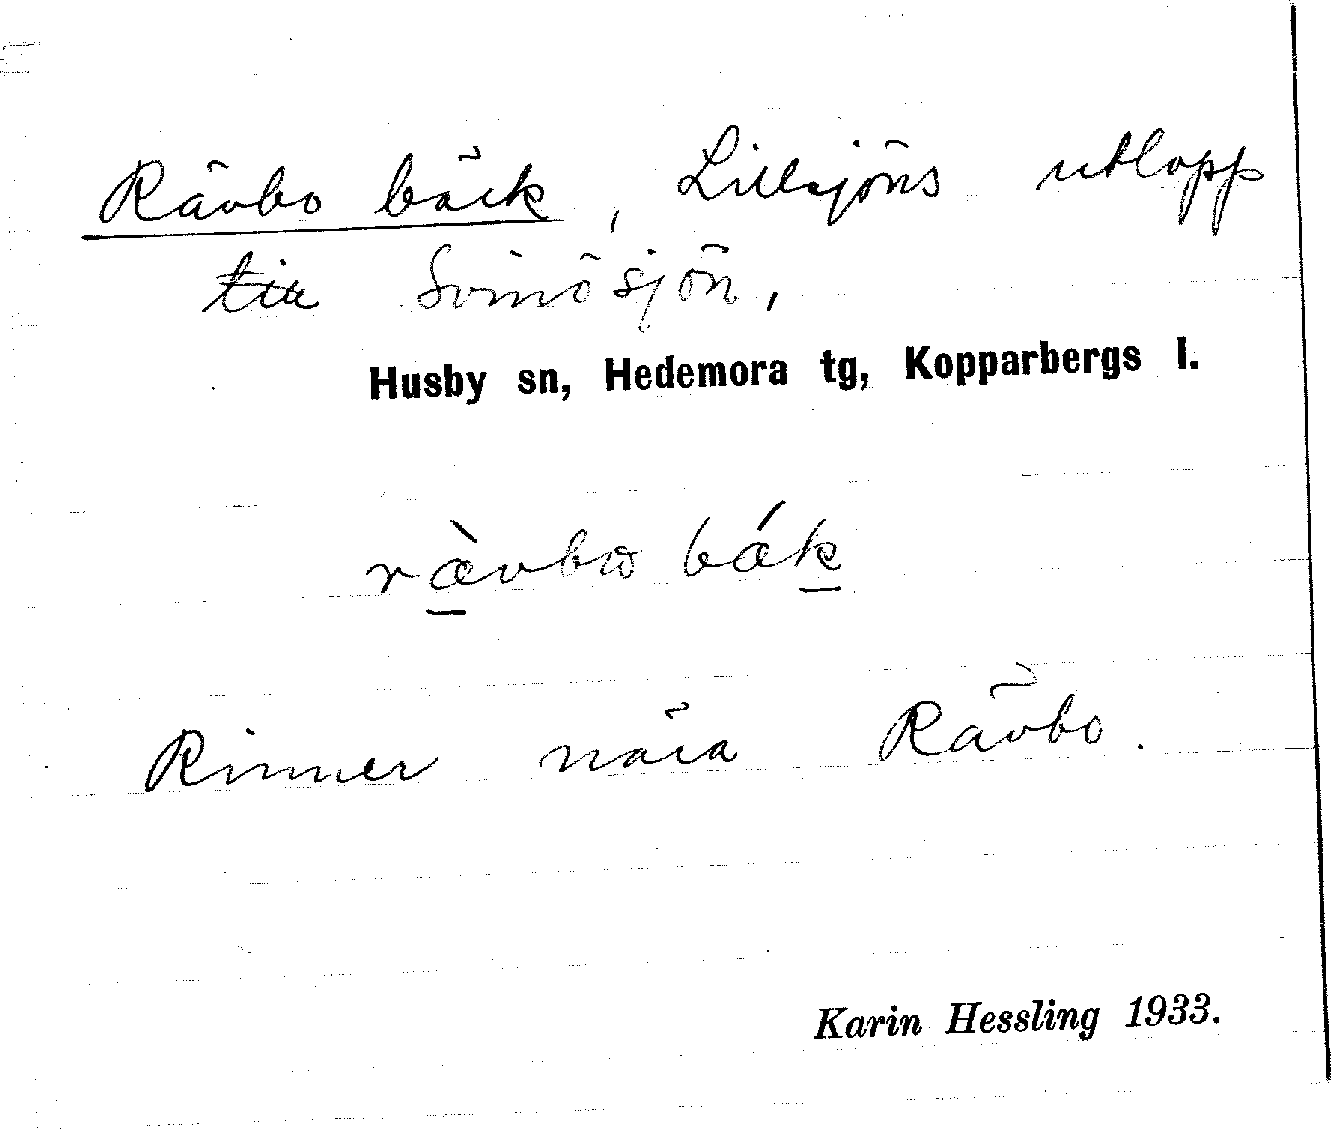 Rävbo bäck, Lillsjöns utlopp
till Svinösjön,
Husby sn, Hedemora tg, Kopparbergs l.
ræ̀vbω bák
Rinner nära Rävbo.
Karin Hessling 1933.